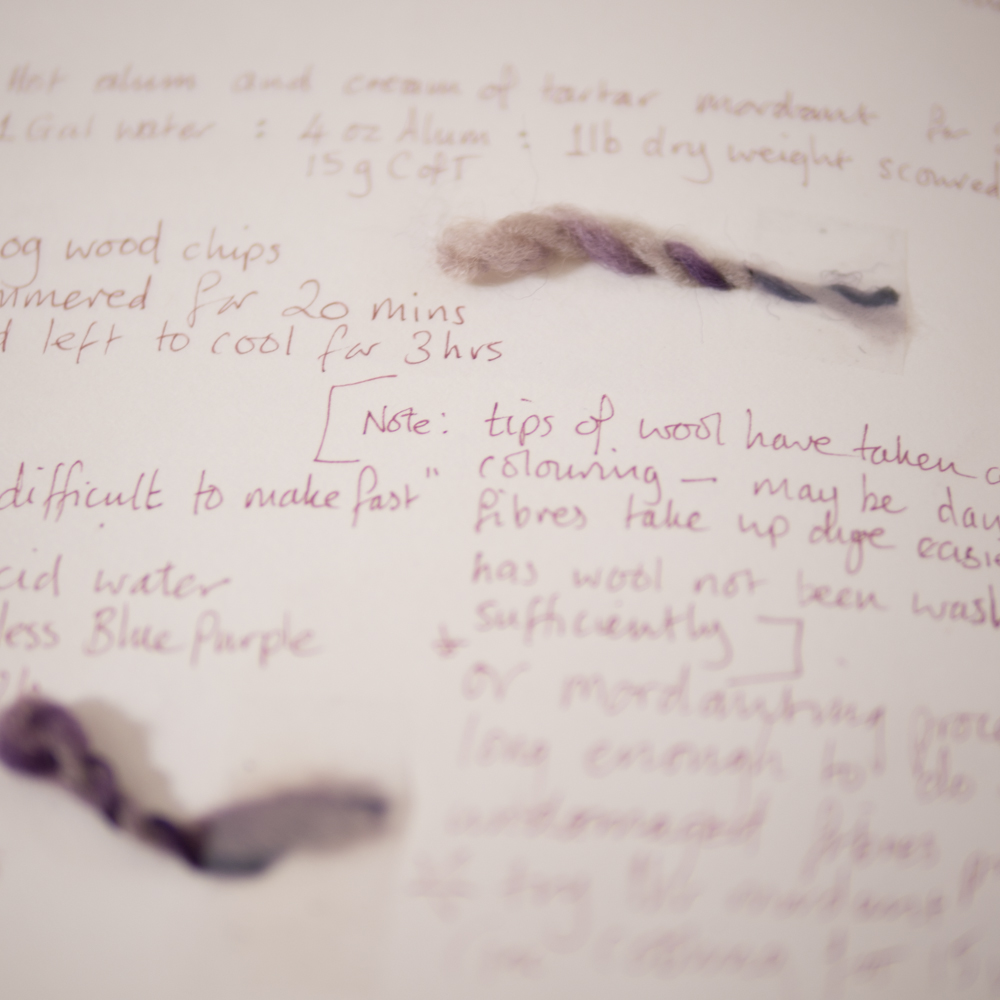 Hot alum and cream of tartar mordant for
1 Gal water : 4 oz Alum : 1lb dry weight scoured
15g CofT
og wood chips
immered for 20 mins
d left to cool for 3hrs
[Note: tips of wool have taken
colouring — may be
difficult to make fast"
fibres take up dye
cid water
has wool not been wash
less Blue Purple
* sufficiently]
or mordanting
long enough to do
undamaged fibres
** try